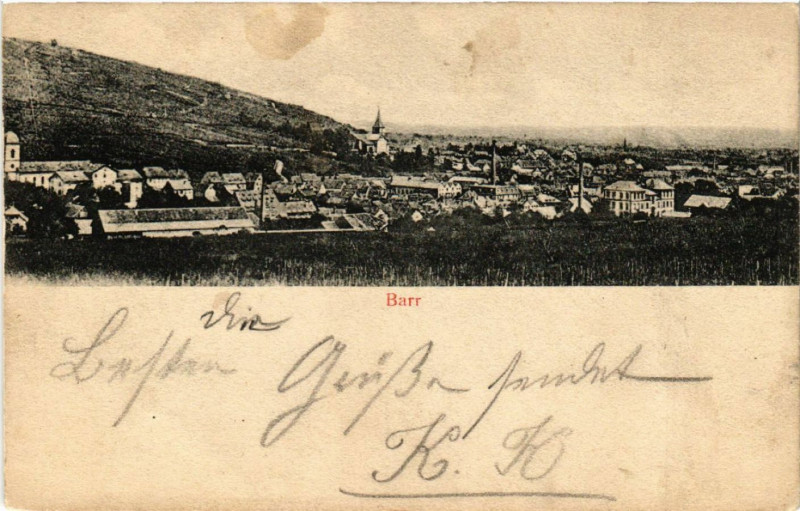 Barr
die
Besten Grüße sendet
K. K